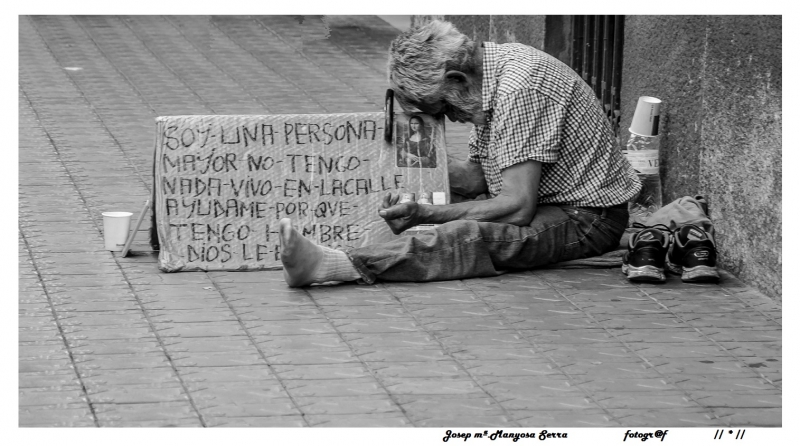 SOY-UNA-PERSONA-
MAYOR NO-TENGO-
NADA-VIVO-EN-LACALLE
AYUDAME-POR-QUE-
TENGO
DIOS
Josep mª.Manyosa Serra fotogr@f // * //